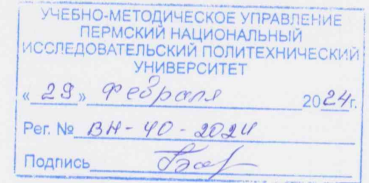 УЧЕБНО-МЕТОДИЧЕСКОЕ УПРАВЛЕНИЕ
ПЕРМСКИЙ НАЦИОНАЛЬНЫЙ
ИССЛЕДОВАТЕЛЬСКИЙ ПОЛИТЕХНИЧЕСКИЙ
УНИВЕРСИТЕТ
«29» февраля 2024г.
Рег. № ВН-40-2024
Подпись